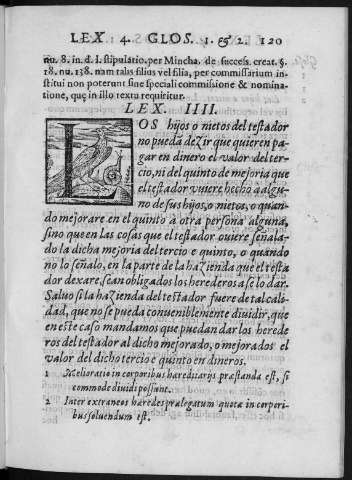 LEX. 4. GLOS. 1. & 2. 120
nu. 8. in. d. l. stipulatio. per Mincha. de succeſs. creat. §.
18. nu. 138. nam talis filius vel filia, per commiſſarium in-
ſtitui non poterunt ſine ſpeciali commiſsione & nomina-
tione, quę in illo textu requiritur.
LEX. IIII.
LOS hijos o nietos del teſtador
no pueda dezir que quieren pa-
gar en dinero el valor del ter-
cio, ni del quinto de mejoria que
el teſtador vuiere hecho a algu-
no de ſus hijos, o nietos, o quan-
do mejorare en el quinto à otra perſona alguna,
ſino que en las coſas que el teſtador ouiere ſeñala-
do la dicha mejoria del tercio e quinto, o quando
no lo ſeñalo, en la parte de la hazienda que el teſta
dor dexare, ſean obligados los herederos a ſe lo dar.
Saluo ſi la hazienda del teſtador fuere de tal cali-
dad, que no ſe pueda conueniblemente diuidir, que
en eſte caſo mandamos que puedan dar los herede
ros del teſtador al dicho mejorado, o mejorados el
valor del dicho tercio e quinto en dineros.
1 Melioratio in corporibus hæreditarijs præſtanda eſt, ſi
commode diuidi poſſunt.
2 Inter extraneos hæredes prælegatum quotæ in corpori-
bus ſoluendum eſt.